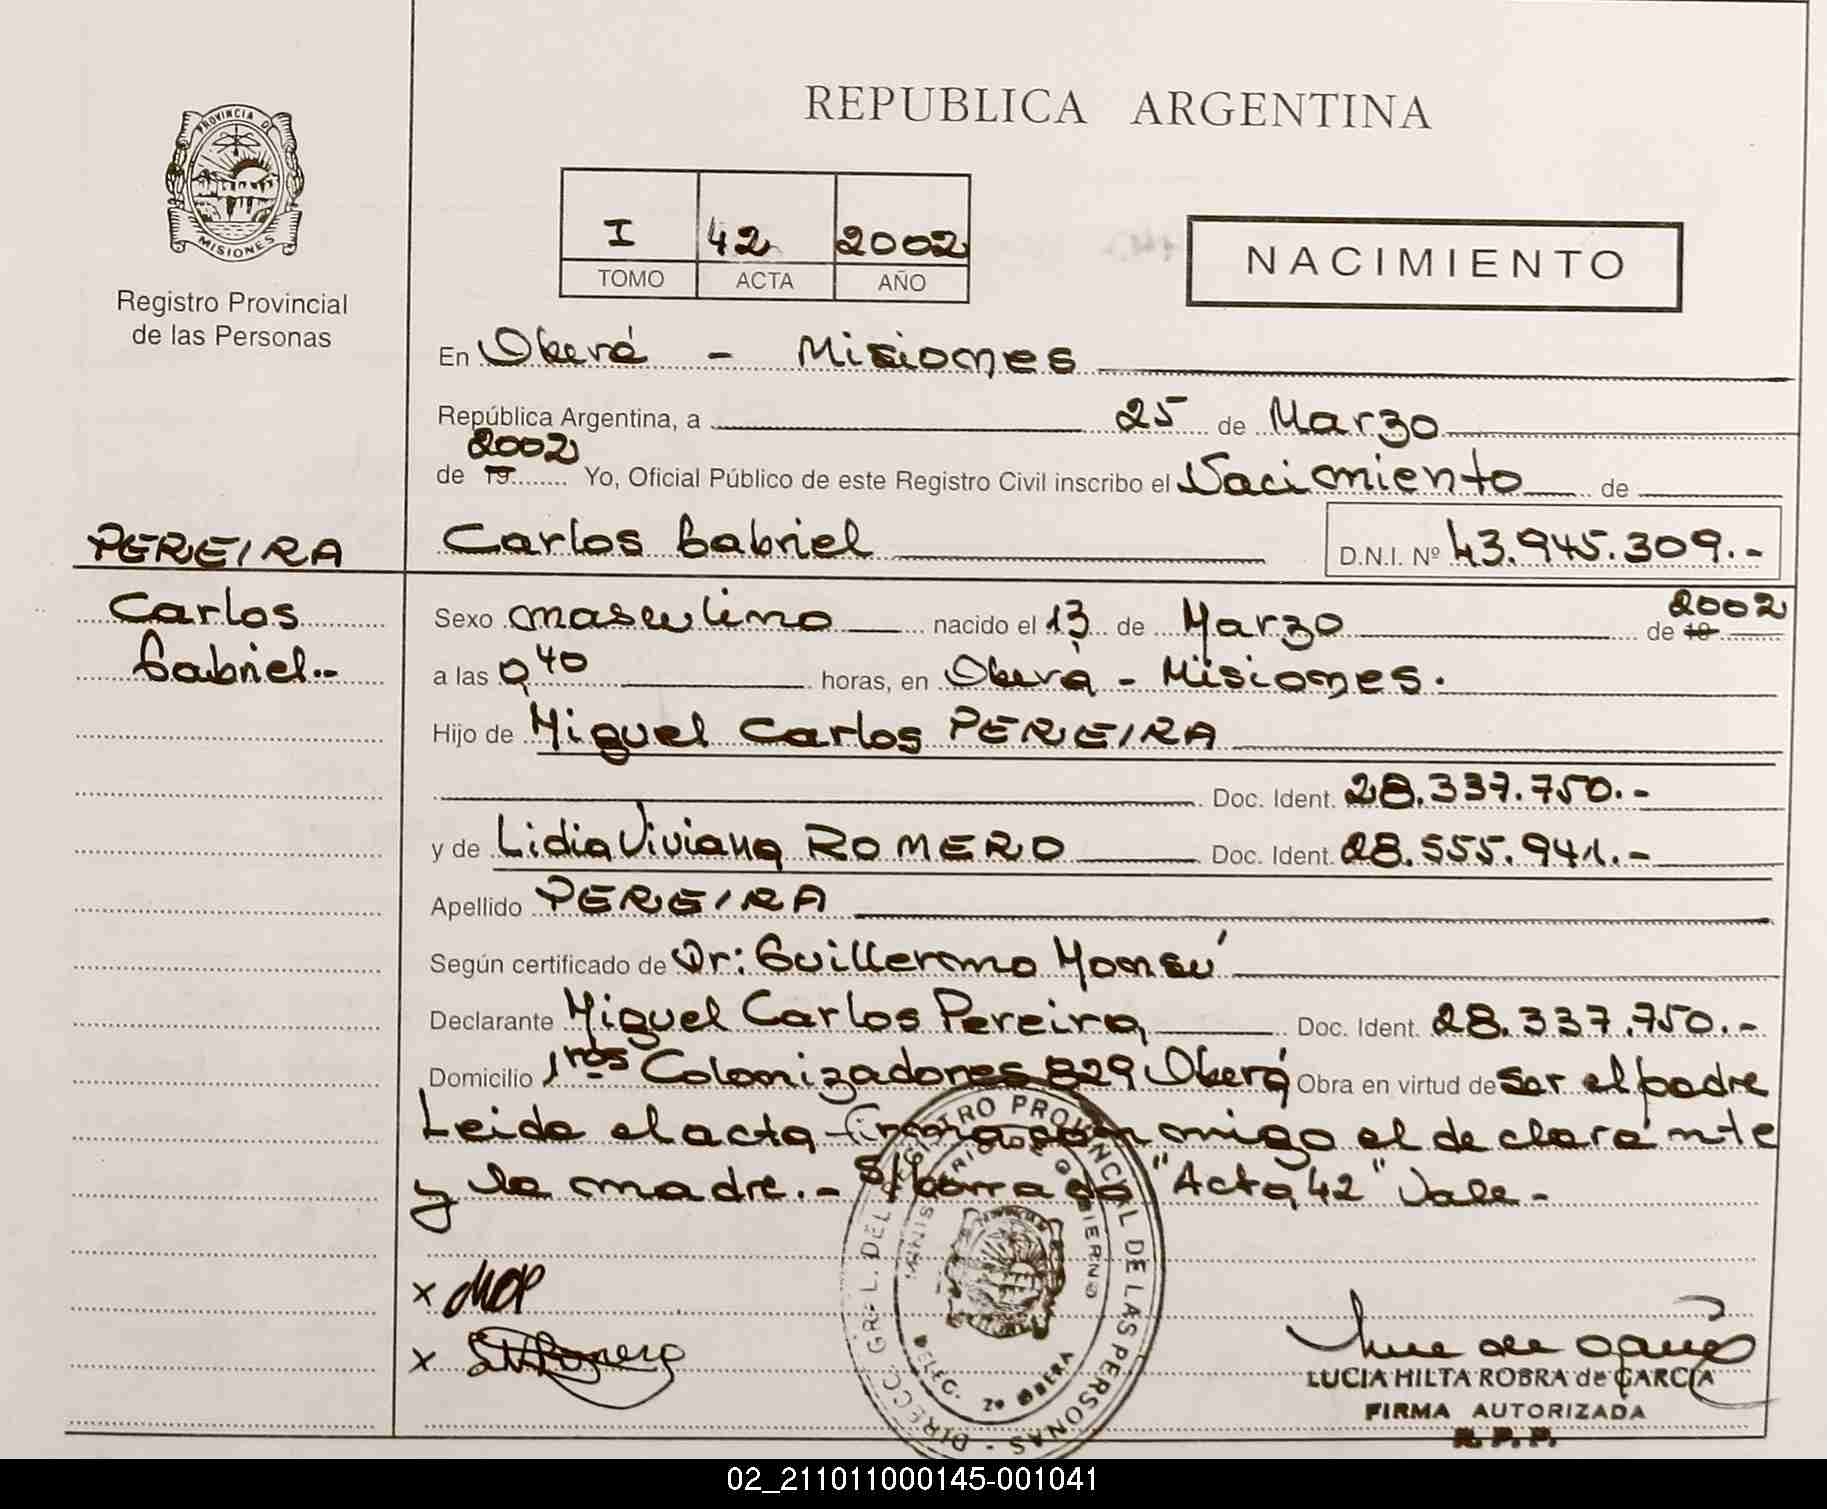 REPUBLICA ARGENTINA
PROVINCIA DE
MISIONES
Registro Provincial
de las Personas
I 42 2002
TOMO ACTA AÑO
NACIMIENTO
En Oberá - Misiones
República Argentina, a 25 de Marzo
2002
de 19 Yo, Oficial Público de este Registro Civil inscribo el Nacimiento de
PEREIRA
Carlos
Gabriel.-
Carlos Gabriel D.N.I. Nº 43.945.309.-
Sexo masculino nacido el 13 de Marzo de 19 2002
a las 0,40 horas, en Oberá - Misiones.
Hijo de Miguel Carlos PEREIRA
Doc. Ident. 28.337.750.-
y de Lidia Viviana ROMERO Doc. Ident. 28.555.941.-
Apellido PEREIRA
Según certificado de Dr: Guillermo Monsú
Declarante Miguel Carlos Pereira Doc. Ident. 28.337.750.-
Domicilio 1ros Colonizadores 829 Oberá Obra en virtud de ser el padre
Leida el acta firman conmigo el declarante
y la madre.- S/borrado "Acta 42" Vale-
x
x
DIRECC. GRAL. DEL REGISTRO PROVINCIAL DE LAS PERSONAS -
MINISTERIO DE GOBIERNO
DELEG. 2º OBERA
LUCIA HILTA ROBRA de GARCÍA
FIRMA AUTORIZADA
R. P. P.
02_211011000145-001041